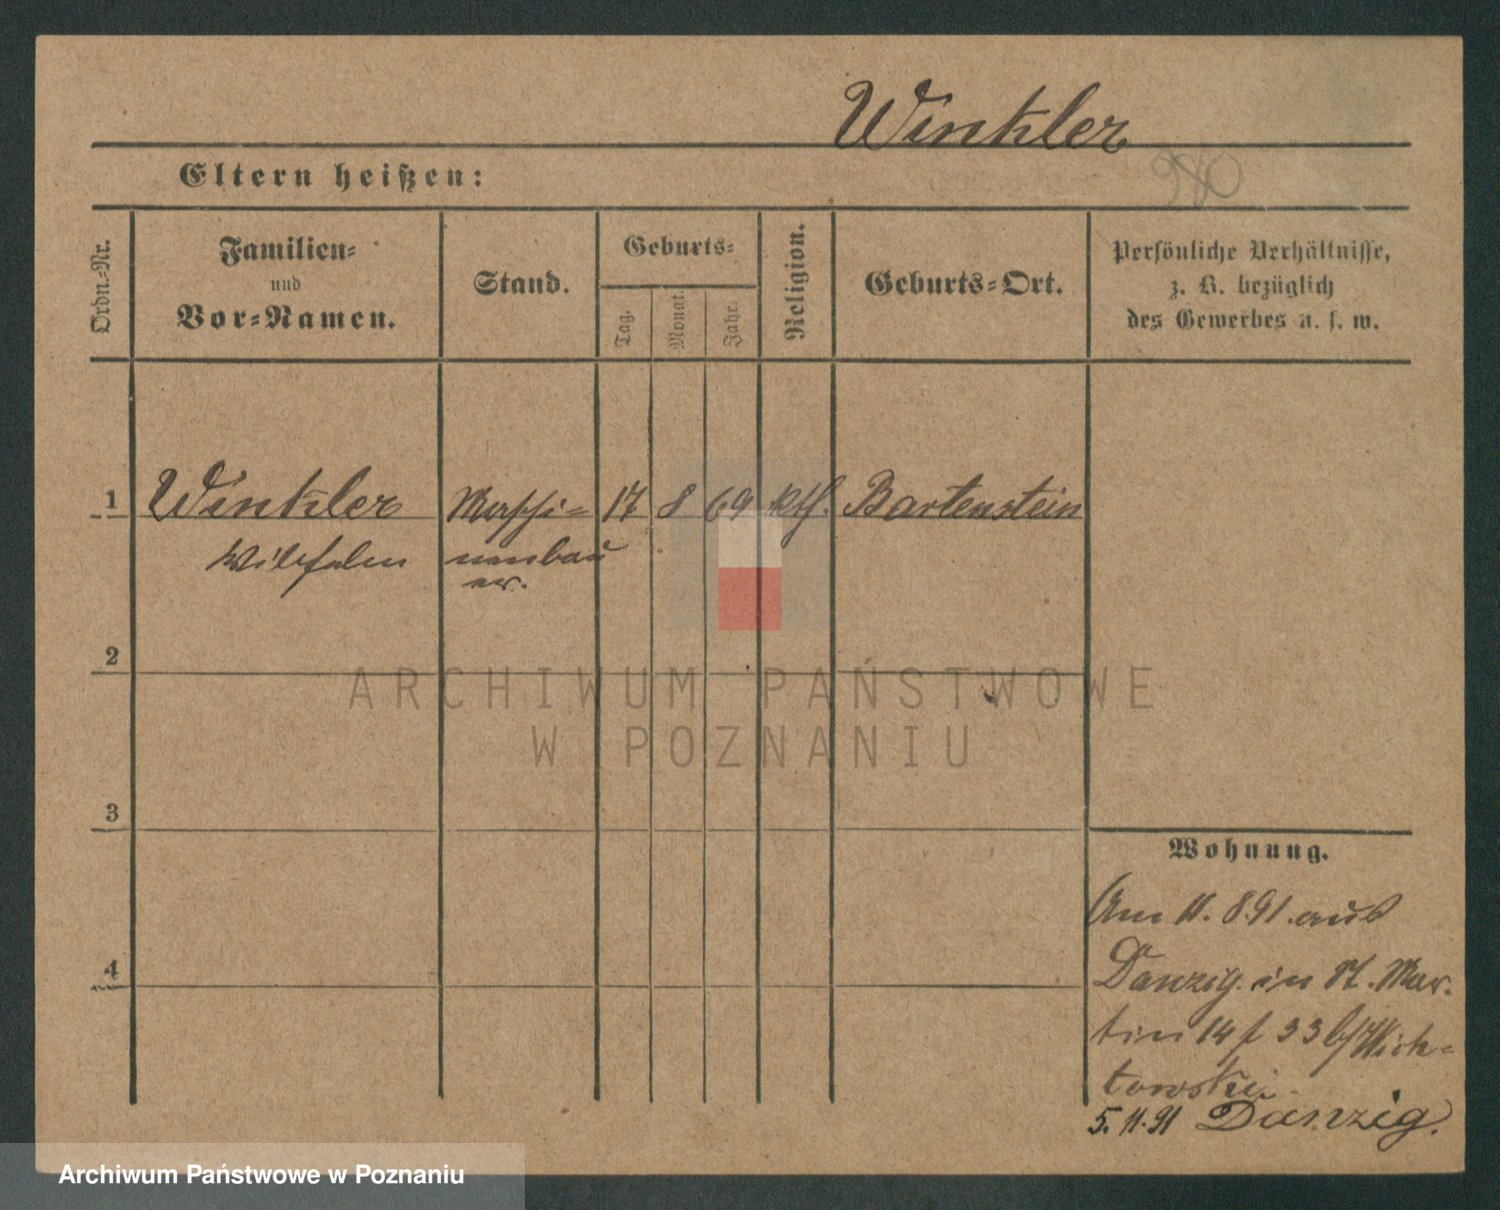 Winkler
980
Eltern heißen:
Ordn.-Nr.
Familien-
und
Vor-Namen.
Stand.
Geburts-
Tag.
Monat.
Jahr.
Religion.
Geburts-Ort.
Persönliche Verhältnisse,
z. B. bezüglich
des Gewerbes u. s. w.
1 Winkler Maschi= 17 8 69 kth. Bartenstein
Wilhelm nenbau
er.
2
ARCHIWUM PAŃSTWOWE
W POZNANIU
3
4
Wohnung.
Am 11. 8. 91. aus
Danzig in St. Mar-
tin 14 33 b/
towski
5. 11. 91 Danzig.
Archiwum Państwowe w Poznaniu